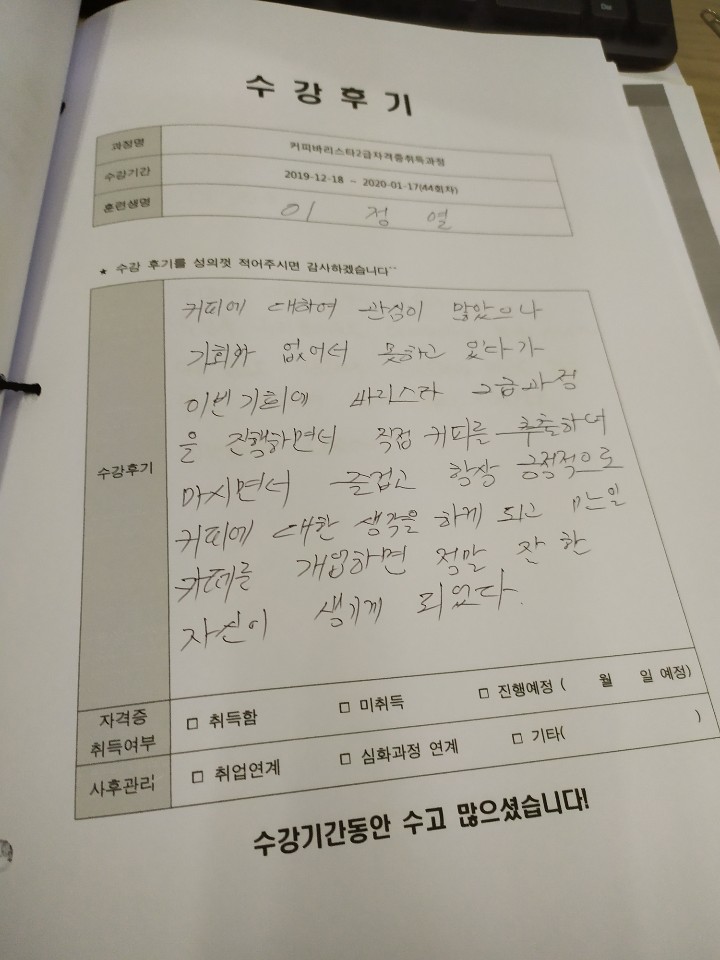 수강후기
과정명 커피바리스타2급자격증취득과정
수강기간 2019-12-18 ~ 2020-01-17(44회차)
훈련생명 이 정 열
★ 수강 후기를 성의껏 적어주시면 감사하겠습니다^^
수강후기
커피에 대하여 관심이 많았으나
기회가 없어서 못하고 있다가
이번 기회에 바리스타 2급과정
을 진행하면서 직접 커피를 추출하여
마시면서 즐겁고 항상 긍정적으로
커피에 대한 생각을 하게 되고 만일
카페를 개업하면 정말 잘 할
자신이 생기게 되었다.
자격증 취득여부 □ 취득함 □ 미취득 □ 진행예정 ( 월 일 예정)
사후관리 □ 취업연계 □ 심화과정 연계 □ 기타( )
수강기간동안 수고 많으셨습니다!